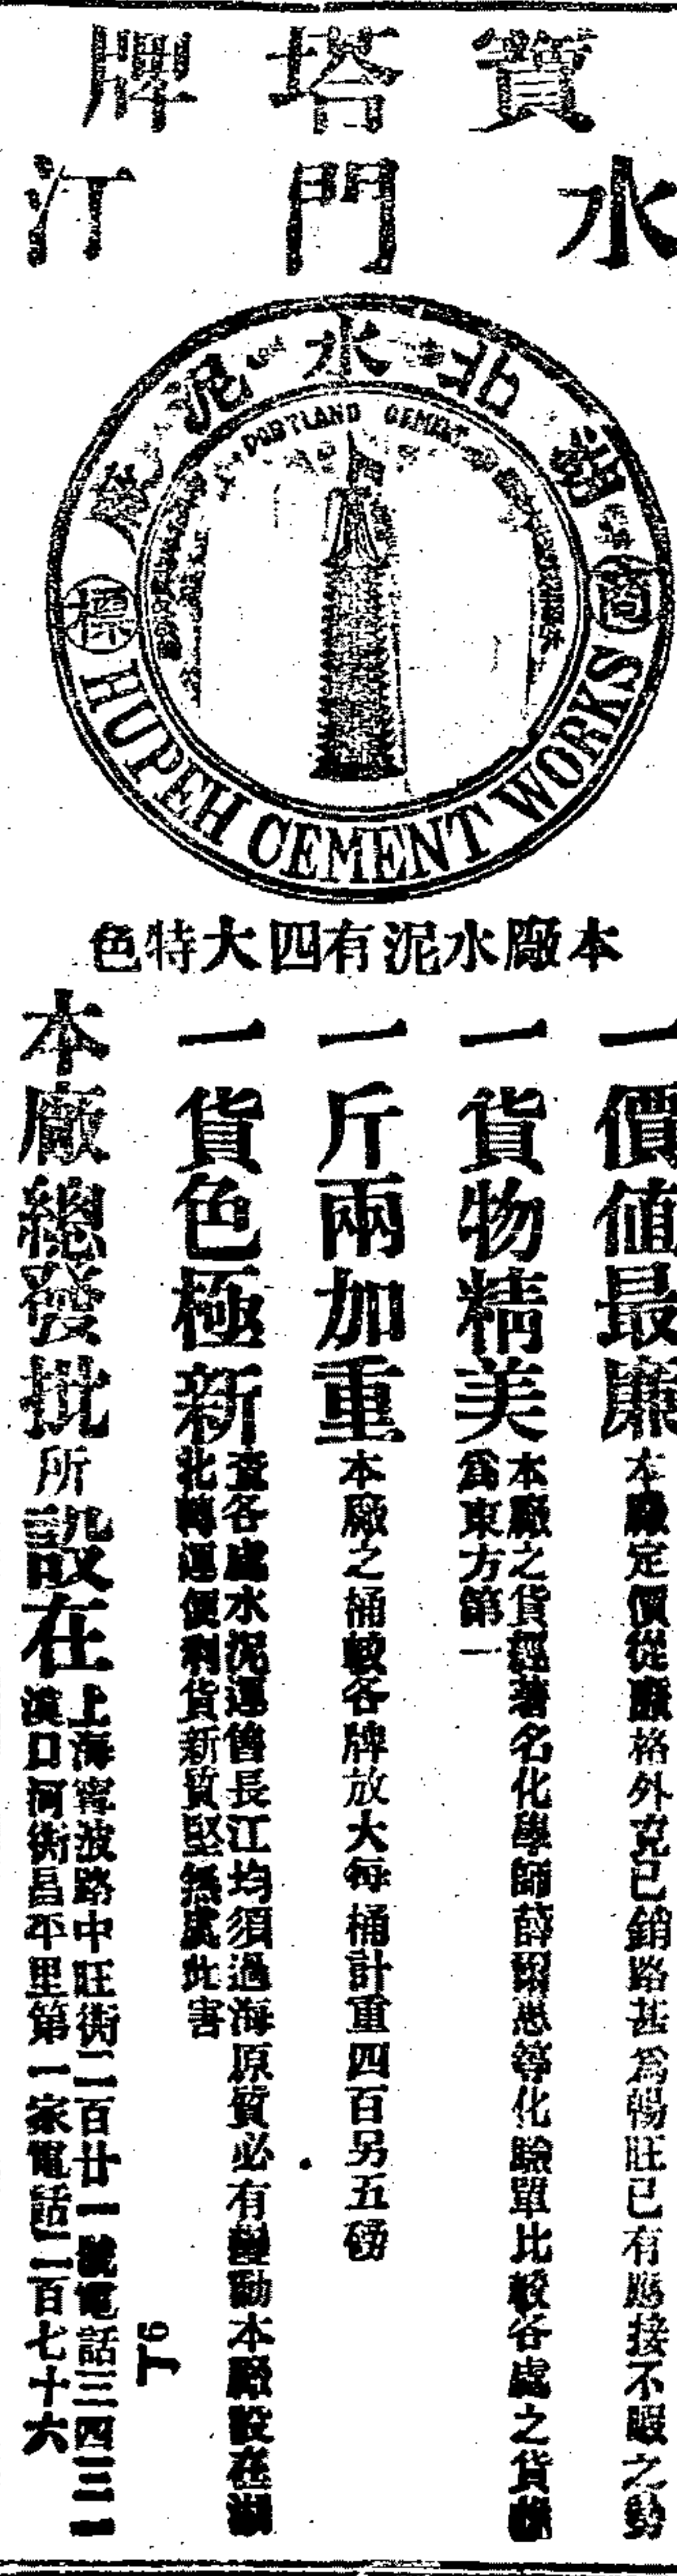 寶塔牌
水門汀
湖北水泥廠
PORTLAND CEMENT
商標
HUPEH CEMENT WORKS
本廠水泥有四大特色
一價值最廉
本廠定價從廉格外克已銷路甚爲暢旺已有應接不暇之勢
一貨物精美
本廠之貨經著名化學師薛爾思等化驗單比較各處之貨
爲東方第一
一斤兩加重
本廠之桶較各牌放大每桶計重四百另五磅
一貨色極新
查各處水泥運售長江均須過海原質必有變動本廠設在湖
北轉運便利貨新質堅無虞此害
本廠總發批所設在
上海寗波路中旺街二百廿一號電話三四三一
漢口河街昌平里第一家電話二百七十六
T6